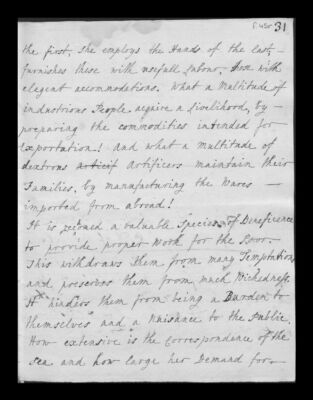 31
the first. she employs the Hands of the last,
furnishes these with usefull Labour, those with
elegant accommodations. What a Multitude of
industrious People, acquire a livelihood, by
preparing the commodities intended for
Exportation! And what a multitude of
dextrous artisif Artificers maintain their
Families, by manufacturing the Wares
imported from abroad!
It is reconed a valuable Species of Beneficence
to provide proper Work for the Poor.
This withdraws them from many Temptations
and preserves them from much Wickedness.
It hinders them from being a Burden to
themselves and a Nuisance to the Public.
How extensive is the Correspondence of the
Sea and how large her Demand for